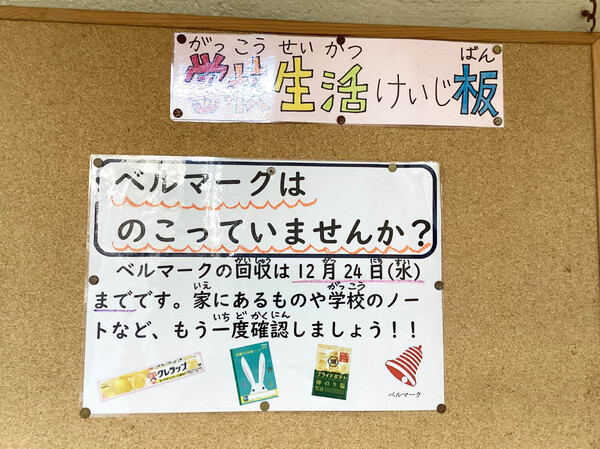 がっこうせいかつ ばん
学校生活けいじ板
ベルマークは
のこっていませんか?
かいしゅう がつ にち すい
ベルマークの回収は12月24日(水)
いえ がっこう
までです。家にあるものや学校のノー
いちどかくにん
トなど、もう一度確認しましょう!!
クレラップ
プライドポテト
神のり塩
ベルマーク